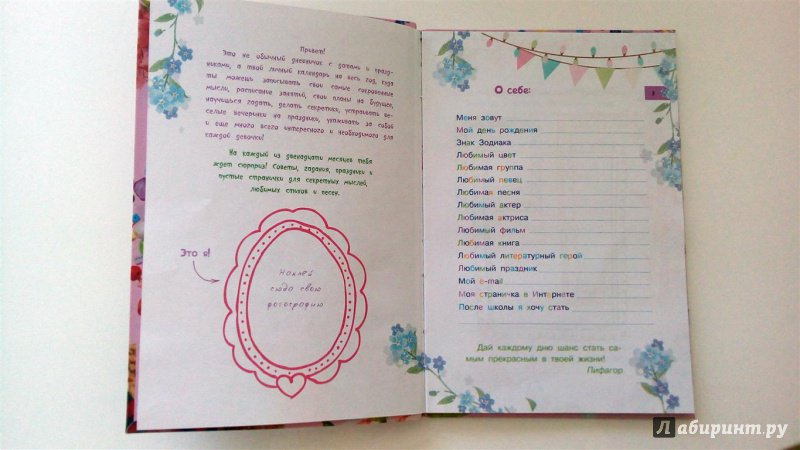 Привет!
Это не обычный дневничок с датами и празд-
никами, а твой личный календарь на весь год, куда
ты можешь записывать свои самые сокровенные
мысли, расписание занятий, свои планы на будущее,
научишься гадать, делать секретики, устраивать ве-
селые вечеринки на праздники, ухаживать за собой
и еще много всего интересного и необходимого для
каждой девочки!
На каждый из двенадцати месяцев тебя
ждет сюрприз! Советы, гадания, праздники и
пустые странички для секретных мыслей,
любимых стихов и песен.
Это я!
Наклей
сюда свою
фотографию
О себе:
3
Меня зовут
Мой день рождения
Знак Зодиака
Любимый цвет
Любимая группа
Любимый певец
Любимая песня
Любимый актер
Любимая актриса
Любимый фильм
Любимая книга
Любимый литературный герой
Любимый праздник
Мой e-mail
Моя страничка в Интернете
После школы я хочу стать
Дай каждому дню шанс стать са-
мым прекрасным в твоей жизни!
Пифагор
Лабиринт.ру